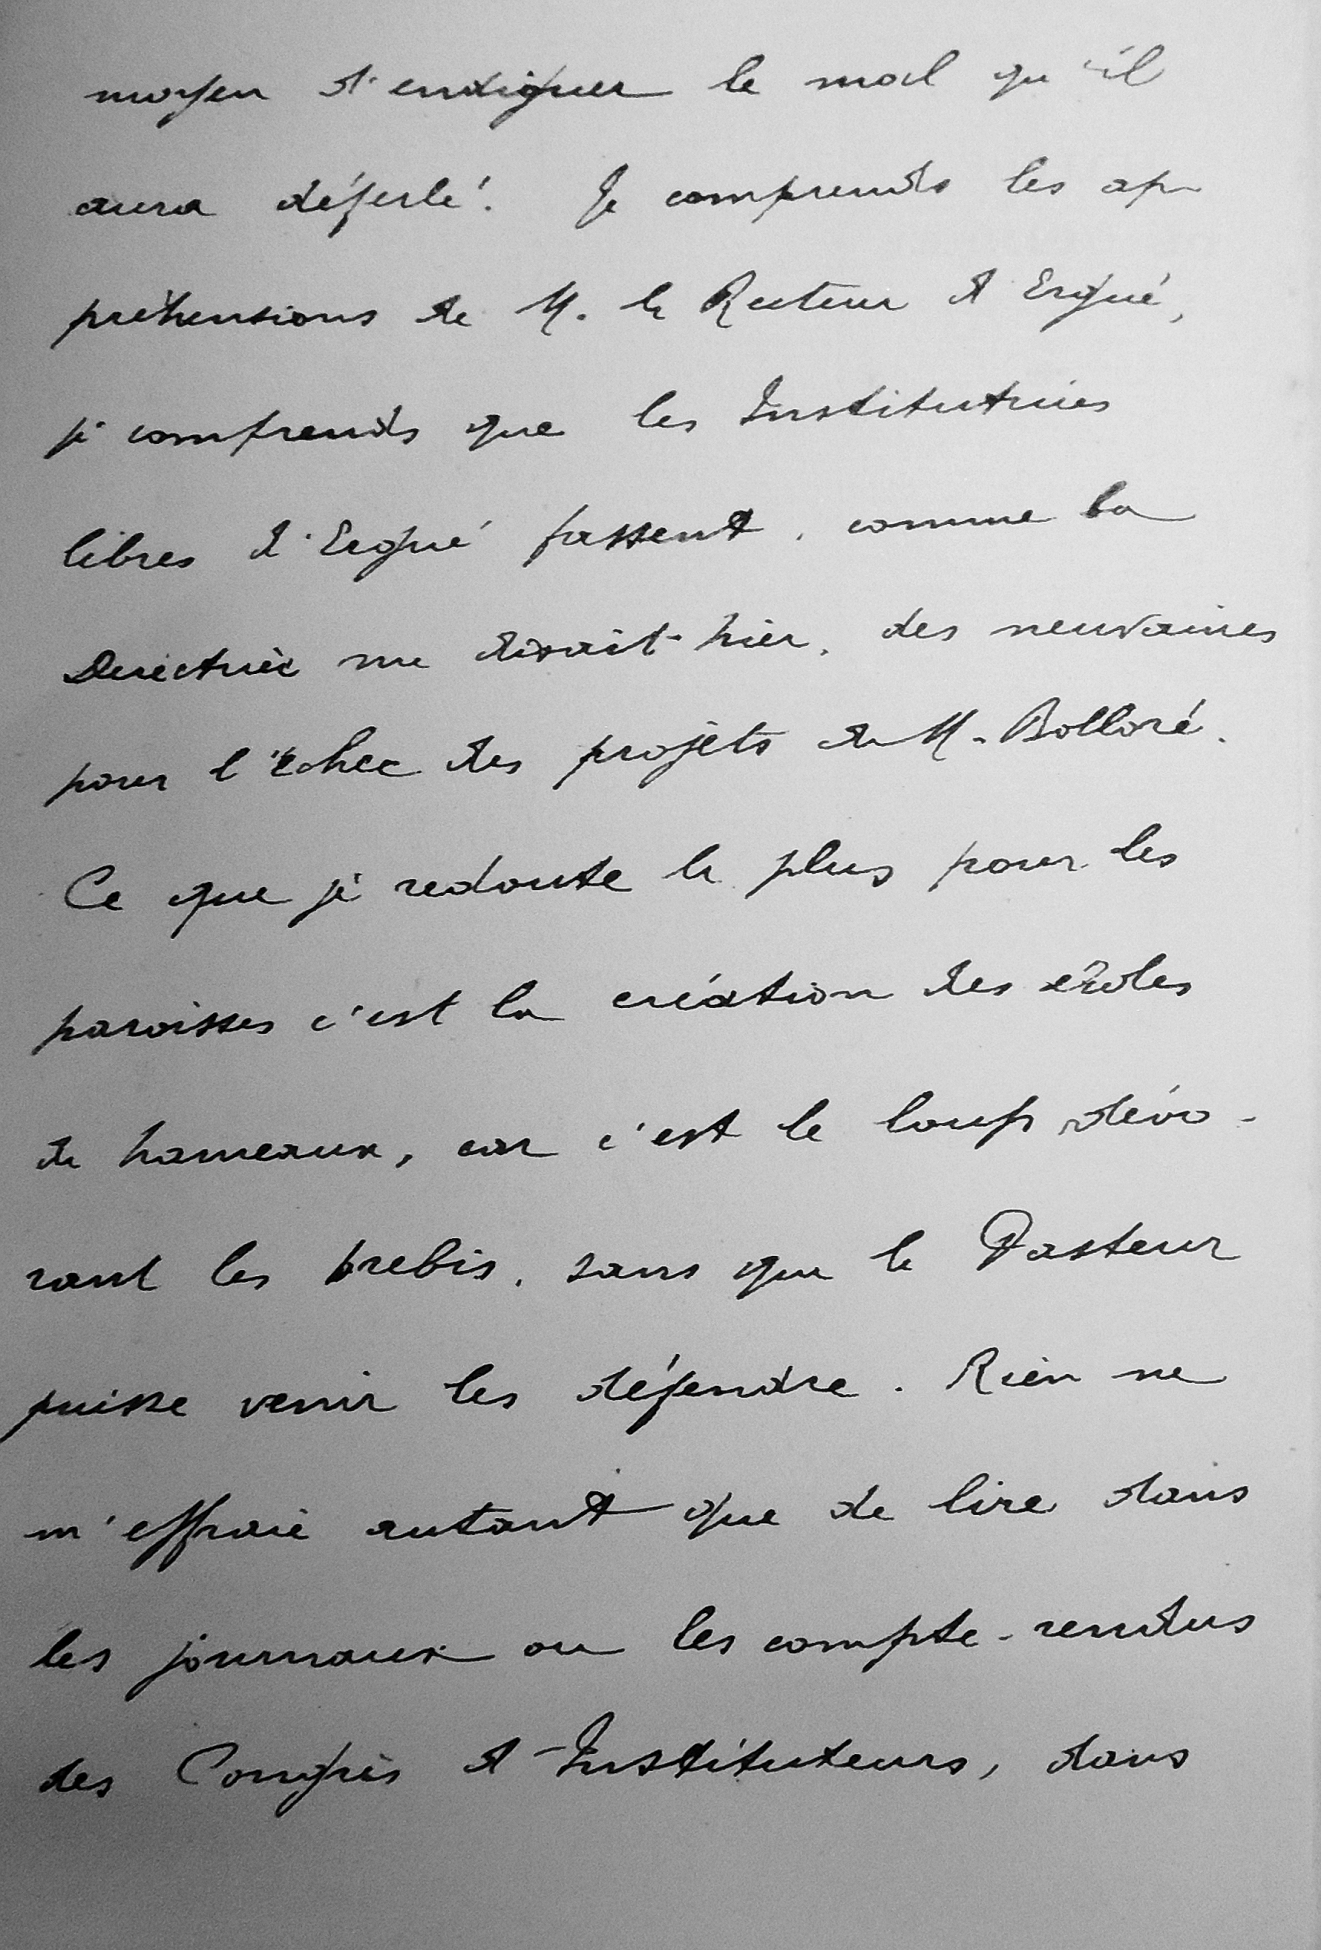 moyen d'endiguer le mal qu'il
aura déferlé. Je comprends les ap-
préhensions de M. le Recteur d'Ergué,
je comprends que les Institutrices
libres d'Ergué fassent, comme la
Directrice me disait hier, des neuvaines
pour l'échec des projets de M. Bolloré.
Ce que je redoute le plus pour les
paroisses c'est la création des écoles
de hameaux, car c'est le loup dévo-
rant les brebis, sans que le Pasteur
puisse venir les défendre. Rien ne
m'effraie autant que de lire dans
les journaux ou les compte-rendus
des Congrès d'Instituteurs, dans